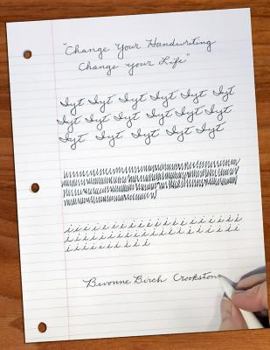 "Change Your Handwriting
Change your Life"
Iyt Iyt Iyt Iyt Iyt Iyt
Iyt Iyt Iyt Iyt Iyt Iyt
Iyt Iyt Iyt Iyt Iyt
i i i i i i i i i i i i i i i i
i i i i i i i i i i i i i i i i
i i i i i i i i
Bivonne Birch Crookston